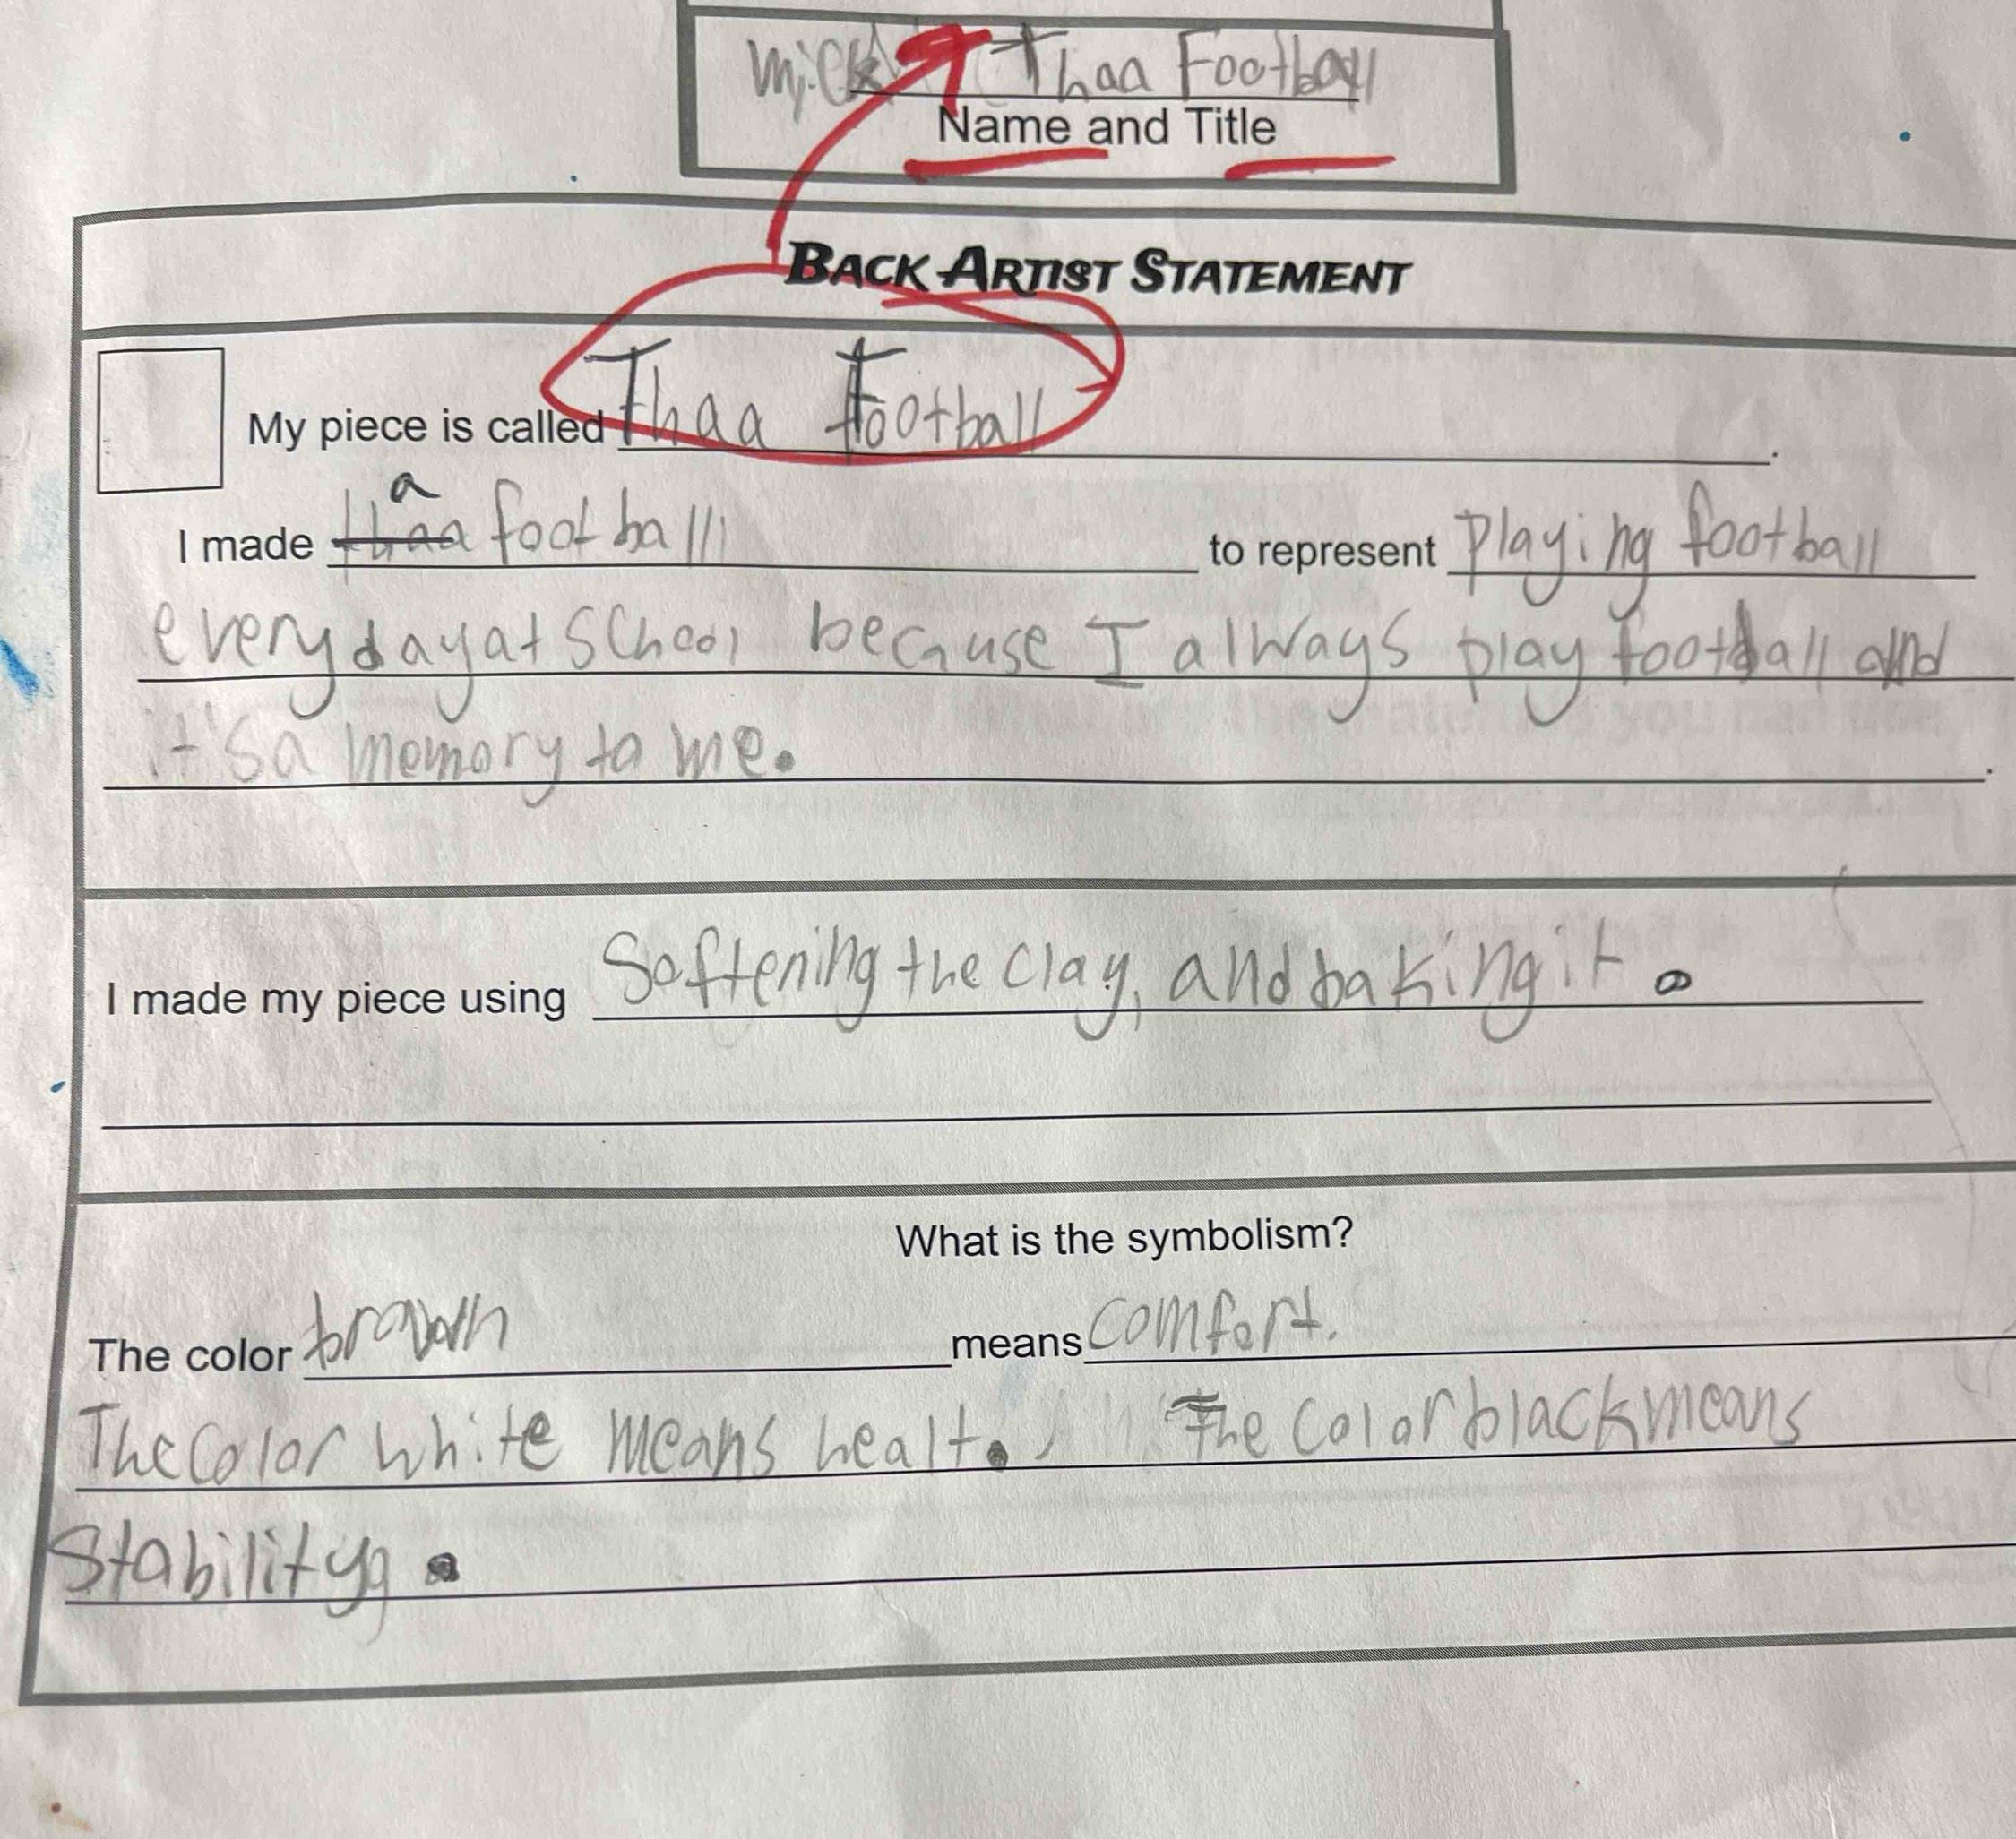 Thaa Football
Name and Title
BACK ARTIST STATEMENT
My piece is called Thaa Football.
a
I made thaa football to represent Playing football
everyday at School because I always play football and
it's a memory to me.
I made my piece using Softening the clay, and baking it.
What is the symbolism?
The color brown means comfort.
The Color white means healt. The Color black means
Stability.